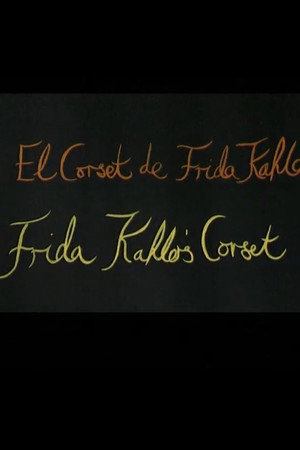 El Corset de Frida Kahlo
Frida Kahlo's Corset